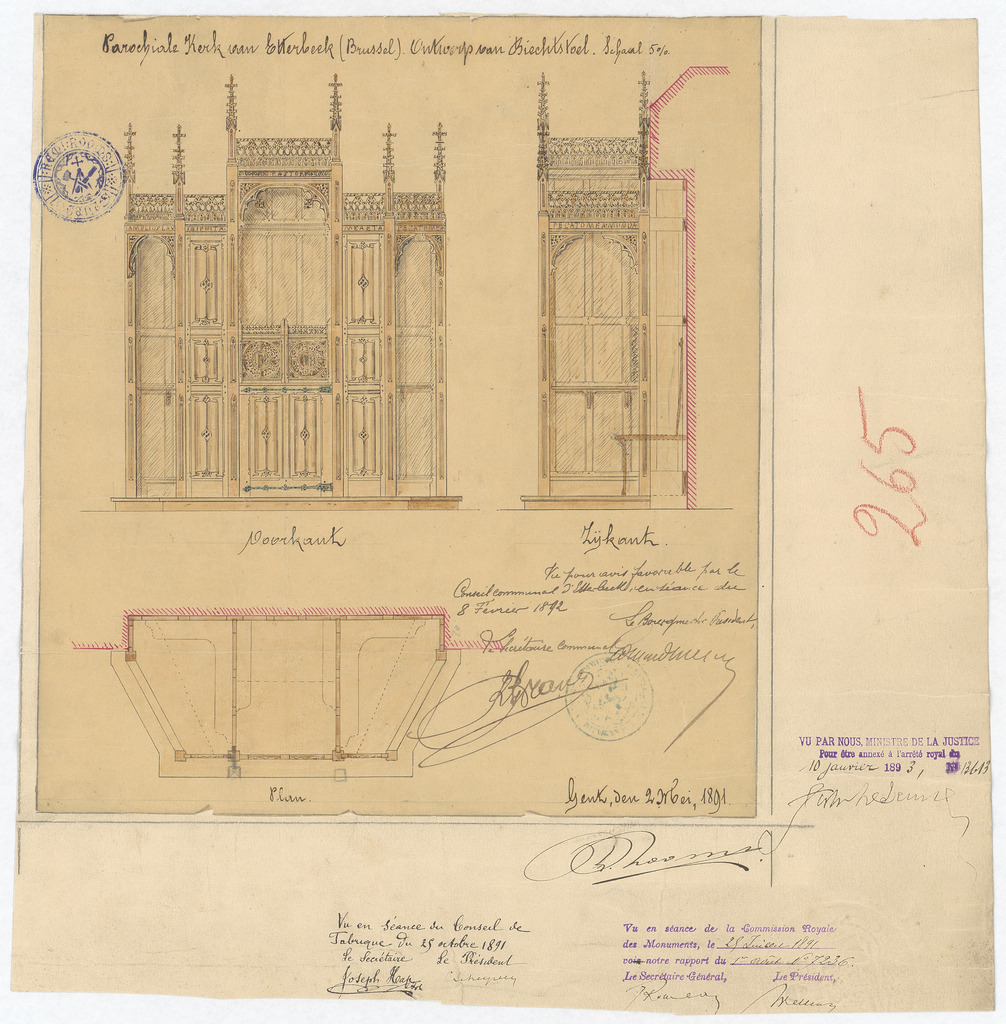 Parochiale Kerk van Etterbeek (Brussel). Ontwerp van Biechtstoel. Schaal 5%.
Voorkant
Zijkant.
Vu pour avis favorable par le
Conseil communal d'Etterbeek, en séance du
8 Février 1892
Le Bourgmestre Président,
Le Secrétaire communal
Plan.
Gent, den 2 Mei, 1891.
265
VU PAR NOUS, MINISTRE DE LA JUSTICE
Pour être annexé à l'arrêté royal du
10 janvier 1893, No 13613
Vu en séance du Conseil de
Fabrique du 25 octobre 1891
Le Secrétaire Le Président
Joseph
Vu en séance de la Commission Royale
des Monuments, le 1891
voir notre rapport du No 7236.
Le Secrétaire Général, Le Président,